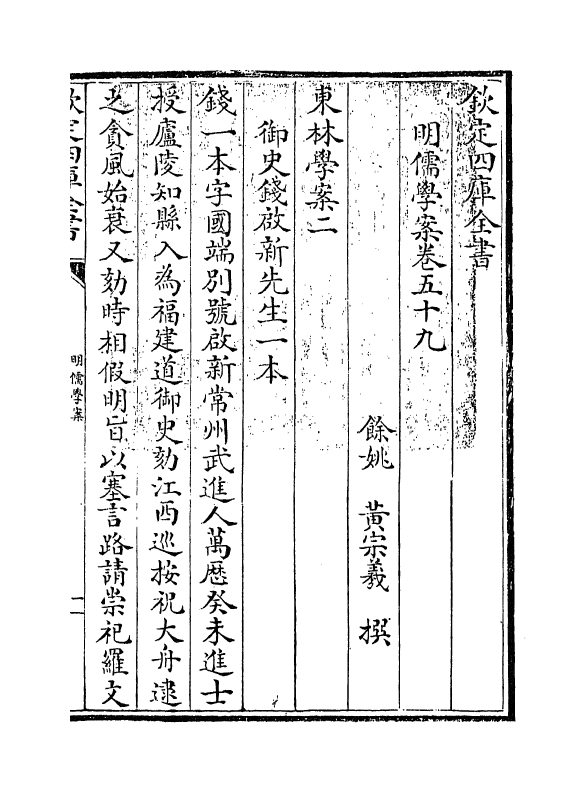 欽定四庫全書
明儒學案卷五十九
餘姚 黃宗羲 撰
東林學案二
御史錢啟新先生一本
錢一本字國端別號啟新常州武進人萬厯癸未進士
授廬陵知縣入為福建道御史劾江西巡按祝大舟逮
之貪風始衰又劾時相假明旨以塞言路請崇祀羅文
欽定四庫全書
明儒學案
一